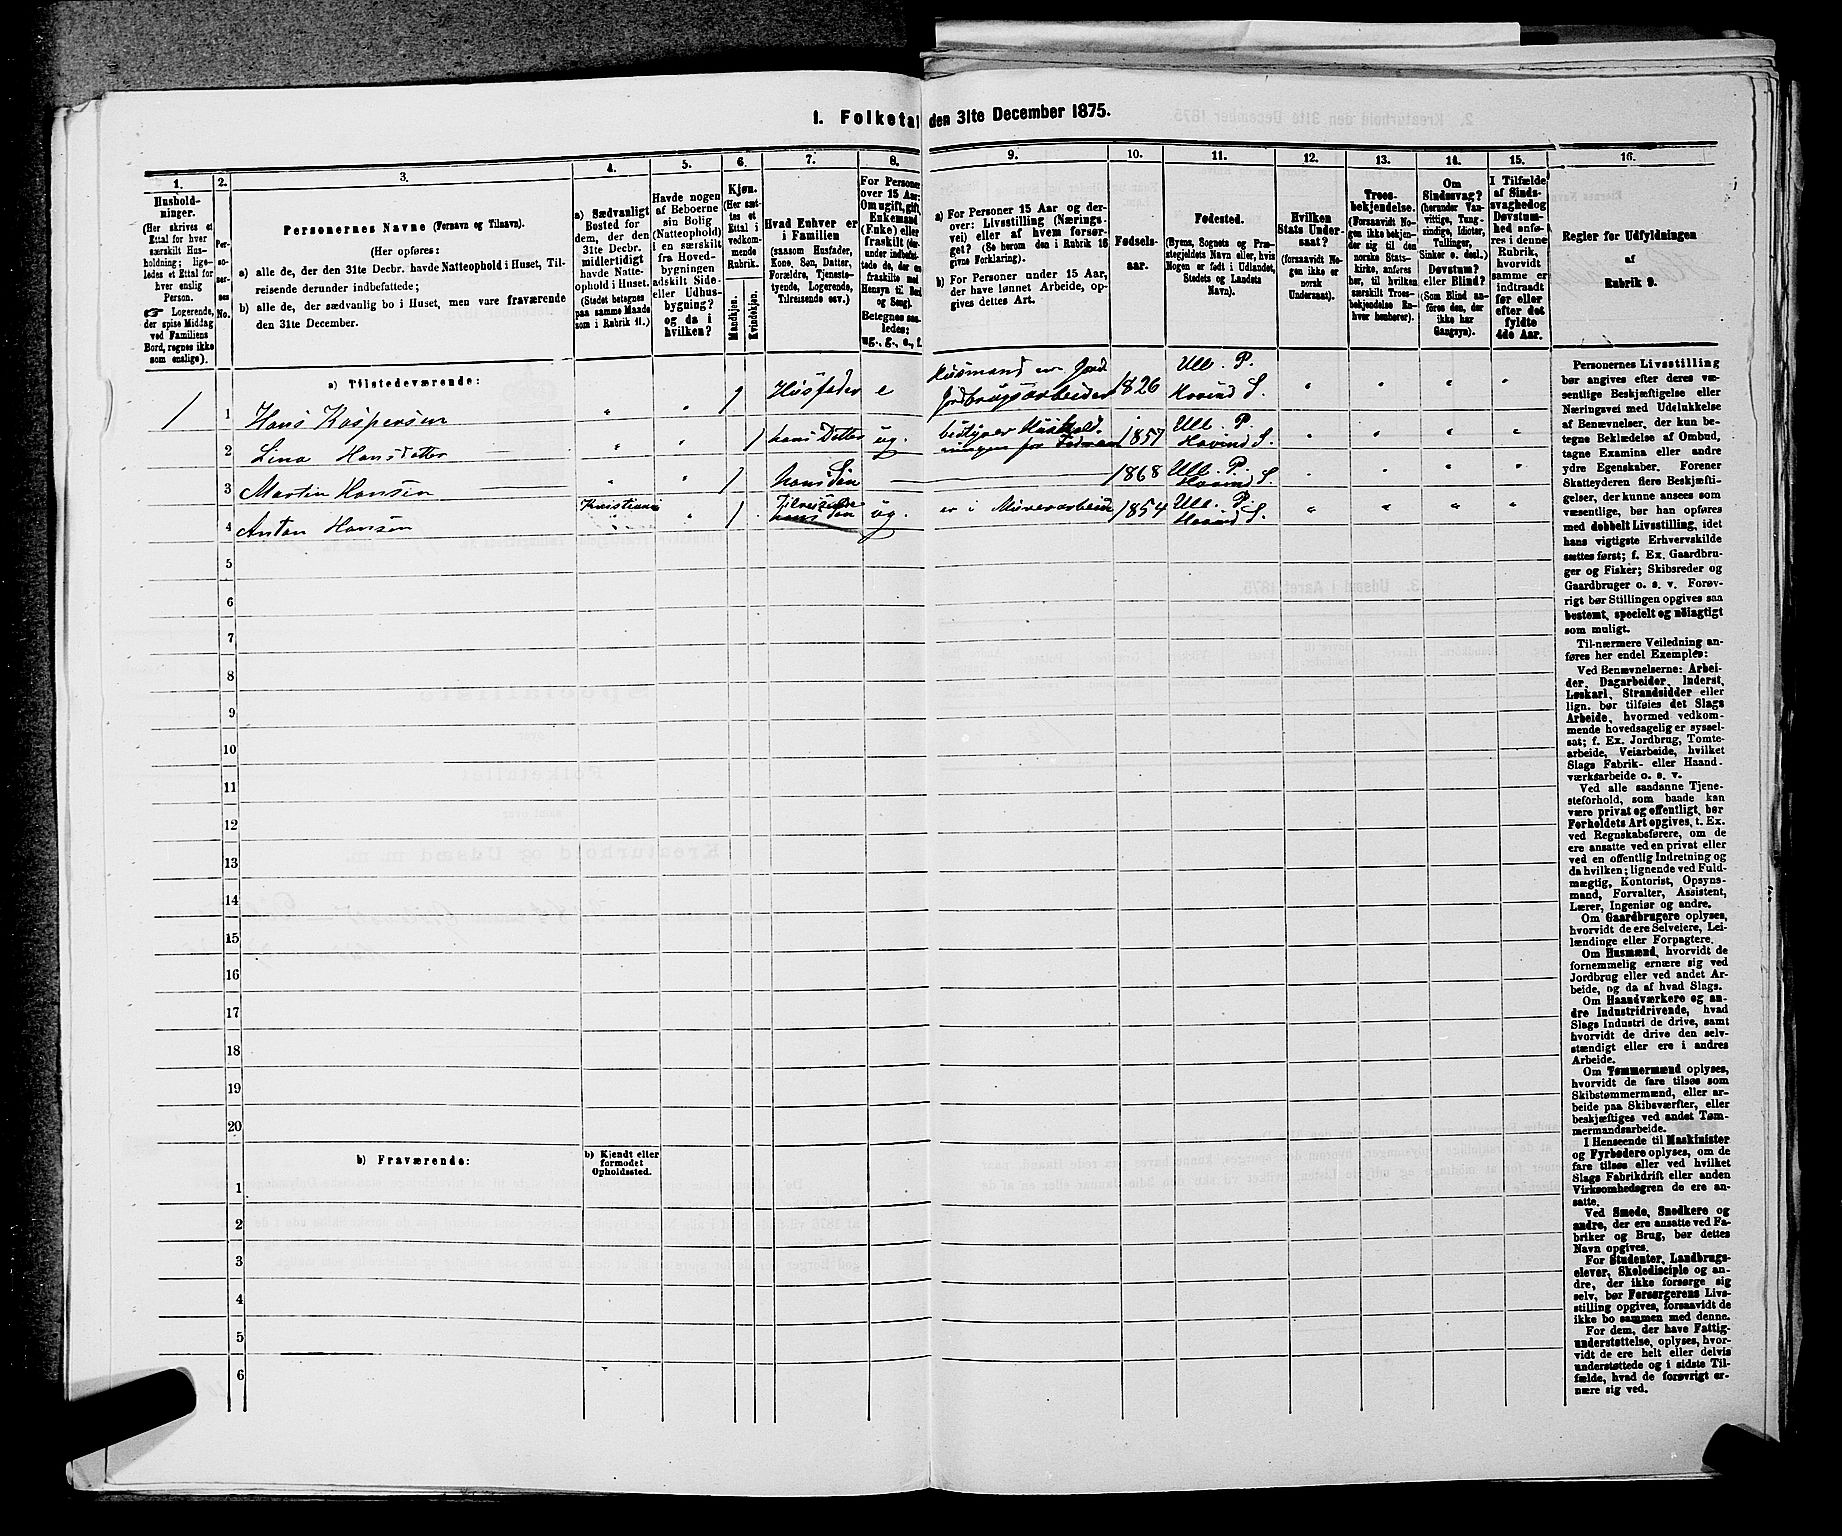 1. Folketal den 31te December 1875.
1.
2.
3.
4.
5.
6.
7.
8.
9.
10.
11.
12.
13.
14.
15.
16.
Hushold-
ninger.
(Her skrives et
Ettal for hver
særskilt Hus-
holdning; lige-
ledes et Ettal for
hver enslig
Person.
☞ Logerende,
der spise Middag
ved Familiens
Bord, regnes ikke
som enslige).
Per-
so-
ner-
nes
No.
Personernes Navne (Fornavn og Tilnavn).
(Her opføres:
a) alle de, der den 31te Decbr. havde Natteophold i Huset, Til-
reisende derunder indbefattede;
b) alle de, der sædvanlig bo i Huset, men vare fraværende
den 31te December.
a) Sædvanligt
Bosted for
dem, der den
31te Decbr.
midlertidigt
havde Natte-
ophold i Huset.
(Stedet betegnes
paa samme Maade
som i Rubrik 11.)
Havde nogen
af Beboerne
sin Bolig
(Natteophold)
i en særskilt
fra Hoved-
bygningen
adskilt Side-
eller Udhus-
bygning?
og da i
hvilken?
Kjøn.
(Her sæt-
tes et
Ettal i
vedkom-
mende
Rubrik.
Mandkjøn.
Kvindekjøn.
Hvad Enhver er
i Familien
(saasom Husfader,
Kone, Søn, Datter,
Forældre, Tjeneste-
tyende, Logerende,
Tilreisende osv.)
For Personer
over 15 Aar:
Om ugift, gift,
Enkemand
(Enke) eller
fraskilt (der-
under indbefat-
tede de, der ere
fraskilte med
Hensyn til Bord
og Seng).
Betegnes saa-
ledes:
ug., g., e., f.
a) For Personer 15 Aar og der-
over: Livsstilling (Nærings-
vei) eller af hvem forsør-
get? (Se herom den i Rubrik 16
givne Forklaring).
b) For Personer under 15 Aar,
der have lønnet Arbeide, op-
gives dettes Art.
Fødsels-
aar.
Fødested.
(Byens, Sognets og Præ-
stegjeldets Navn eller, hvis
Nogen er født i Udlandet,
Stedets og Landets
Navn).
Hvilken
Stats Under-
saat?
(forsaavidt No-
gen ikke er
norsk
Undersaat).
Troes-
bekjendelse.
(Forsaavidt No-
gen ikke bekjen-
der sig til den
norske Stats-
kirke, anføres
her, til hvilken
særskilt Troes-
bekjendelse En-
hver henhører).
Om
Sindssvag?
(herunder Van-
vittige, Tung-
sindige, Idioter,
Tullinger,
Sinker o. desl.)
Døvstum?
eller Blind?
(Som Blind an-
føres den, der
ikke har
Gangsyn).
I Tilfælde
af Sinds-
svaghed og
Døvstum-
hed anfø-
res i denne
Rubrik,
hvorvidt
samme er
indtraadt
før eller
efter det
fyldte
4de Aar.
Regler for Udfyldningen
af
Rubrik 9.
a) Tilstedeværende:
1 1 Hans Kaspersen " " 1 Husfader e Husmand m Jord Jordbrugsarbeider 1826 Ull. P. Hovind S. " " " "
2 Lina Hansdatter " " 1 hans Datter ug. bestyrer Hushold- ningen for Faderen 1857 Ull. P. Hovind S. " " " "
3 Martin Hansen " " 1 hans Søn 1868 Ull. P. Hovind S. " " " "
4 Anton Hansen Kristiania " 1 Tilreisende hans Søn ug. er i Murerarbeide 1854 Ull. P. Hovind S. " " " "
5
6
7
8
9
10
11
12
13
14
15
16
17
18
19
20
b) Fraværende:
b) Kjendt eller
formodet
Opholdssted.
1
2
3
4
5
6
Personernes Livsstilling
bør angives efter deres væ-
sentlige Beskjæftigelse eller
Næringsvei med Udelukkelse
af Benævnelser, der kun be-
tegne Beklædelse af Ombud,
tagne Examina eller andre
ydre Egenskaber. Forener
Skatteyderen flere Beskjæfti-
gelser, der kunne ansees som
væsentlige, bør han opføres
med dobbelt Livsstilling, idet
hans vigtigste Erhvervskilde
sættes først; f. Ex. Gaardbru-
ger og Fisker; Skibsreder og
Gaardbruger o. s. v. Forøv-
rigt bør Stillingen opgives saa
bestemt, specielt og nøiagtigt
som muligt.
Til nærmere Veiledning an-
føres her endel Exempler:
Ved Benævnelserne: Arbei-
der, Dagarbeider, Inderst,
Løskarl, Strandsidder eller
lign. bør tilføies det Slags
Arbeide, hvormed vedkom-
mende hovedsagelig er syssel-
sat; f. Ex. Jordbrug, Tomte-
arbeide, Veiarbeide, hvilket
Slags Fabrik- eller Haand-
værksarbeide o. s. v.
Ved alle saadanne Tjene-
steforhold, som baade kan
være privat og offentligt, bør
Forholdets Art opgives, t. Ex.
ved Regnskabsførere, om de
ere ansatte ved en privat eller
ved en offentlig Indretning og
da hvilken; lignende ved Fuld-
mægtig, Kontorist, Opsyns-
mand, Forvalter, Assistent,
Lærer, Ingeniør og andre.
Om Gaardbrugere oplyses,
hvorvidt de ere Selveiere, Lei-
lændinge eller Forpagtere.
Om Husmænd, hvorvidt de
fornemmelig ernære sig ved
Jordbrug eller ved andet Ar-
beide, og da af hvad Slags.
Om Haandværkere og an-
dre Industridrivende, hvad
Slags Industri de drive, samt
hvorvidt de drive den selv-
stændigt eller ere i andres
Arbeide.
Om Tømmermænd oplyses,
hvorvidt de fare tilsøs som
Skibstømmermænd, eller ar-
beide paa Skibsværfter, eller
beskjæftiges ved andet Tøm-
mermandsarbeide.
I Henseende til Maskinister
og Fyrbødere oplyses, om de
fare tilsøs eller ved hvilket
Slags Fabrikdrift eller anden
Virksomhedsgren de ere an-
satte.
Ved Smede, Snedkere og
andre, der ere ansatte ved Fa-
briker og Brug, bør dettes
Navn opgives.
For Studenter, Landbrugs-
elever, Skoledisciple og an-
dre, der ikke forsørge sig
selv, bør Forsørgerens Livs-
stilling opgives, forsaavidt de
ikke bo sammen med denne.
For dem, der have Fattig-
understøttelse, oplyses, hvor-
vidt de ere helt eller delvis
understøttede og i sidste Til-
fælde, hvad de forøvrigt er-
nære sig ved.